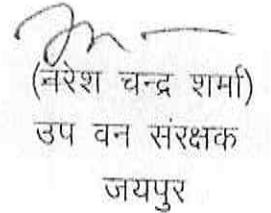 (नरेश चन्द्र शर्मा)
उप वन संरक्षक
जयपुर